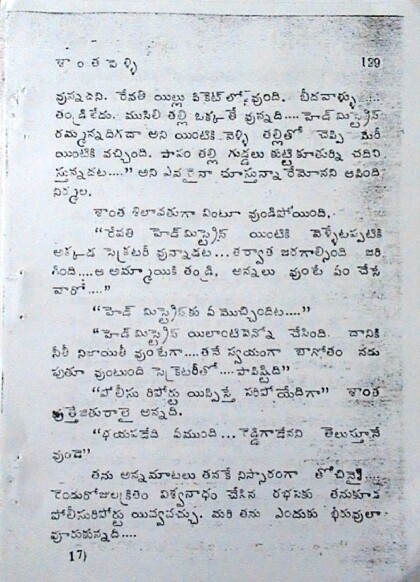 శాంత పెళ్ళి 129
వున్నదని. రేవతి యిల్లు పికెట్‌లో వుంది. బీదవాళ్ళు ....
తండ్రిలేడు. ముసిలి తల్లి ఒక్కతే వున్నది....హెడ్ మిస్ట్రెస్
రమ్మన్నదిగదా అని యింటికి వెళ్ళి తల్లితో చెప్పి మేరీ
యింటికి వచ్చింది. పాపం తల్లి గుడ్డలు కుట్టి కూతుర్ని చదివి
స్తున్నదట....” అని ఎవరైనా చూస్తున్నా రేమోనని ఆపింది
నిర్మల.
శాంత శిలావతుగా వింటూ వుండిపోయింది.
“రేవతి హెడ్‌మిస్ట్రెస్ యింటికి వెళ్ళేటప్పటికి
అక్కడ సెక్రటరీ వున్నాడట...తర్వాత జరగాల్సింది జరి
గింది....ఆ అమ్మాయికి తండ్రి, అన్నలు వుంటే ఏం చేసే
వారో....”
“హెడ్ మిస్ట్రెస్‌కు ఏమొచ్చిందట....”
“హెడ్‌మిస్ట్రెస్ యిలాంటివెన్నో చేసింది. దానికి
నీతీ నిజాయితీ వుంటేగా....తనే స్వయంగా బాగోతం నడు
పుతూ వుంటుంది సెక్రెటరీతో....పాపిష్టిది”
“పోలీసు రిపోర్టు యిప్పిస్తే సరిపోయేదిగా” శాంత
వుత్తేజితురాలై అన్నది.
“భయపడేది ఏముంది...రెడ్డిగాడేనని తెలుస్తూనే
వుందే”
తను అన్నమాటలు తనకే నిస్సారంగా తోచినై.
రెండురోజులక్రితం విశ్వనాధం చేసిన రభసకు తనుకూడ
పోలీసురిపోర్టు యివ్వవచ్చు. మరి తను ఎందుకు భీరువులా
వూరుకున్నది....
17)